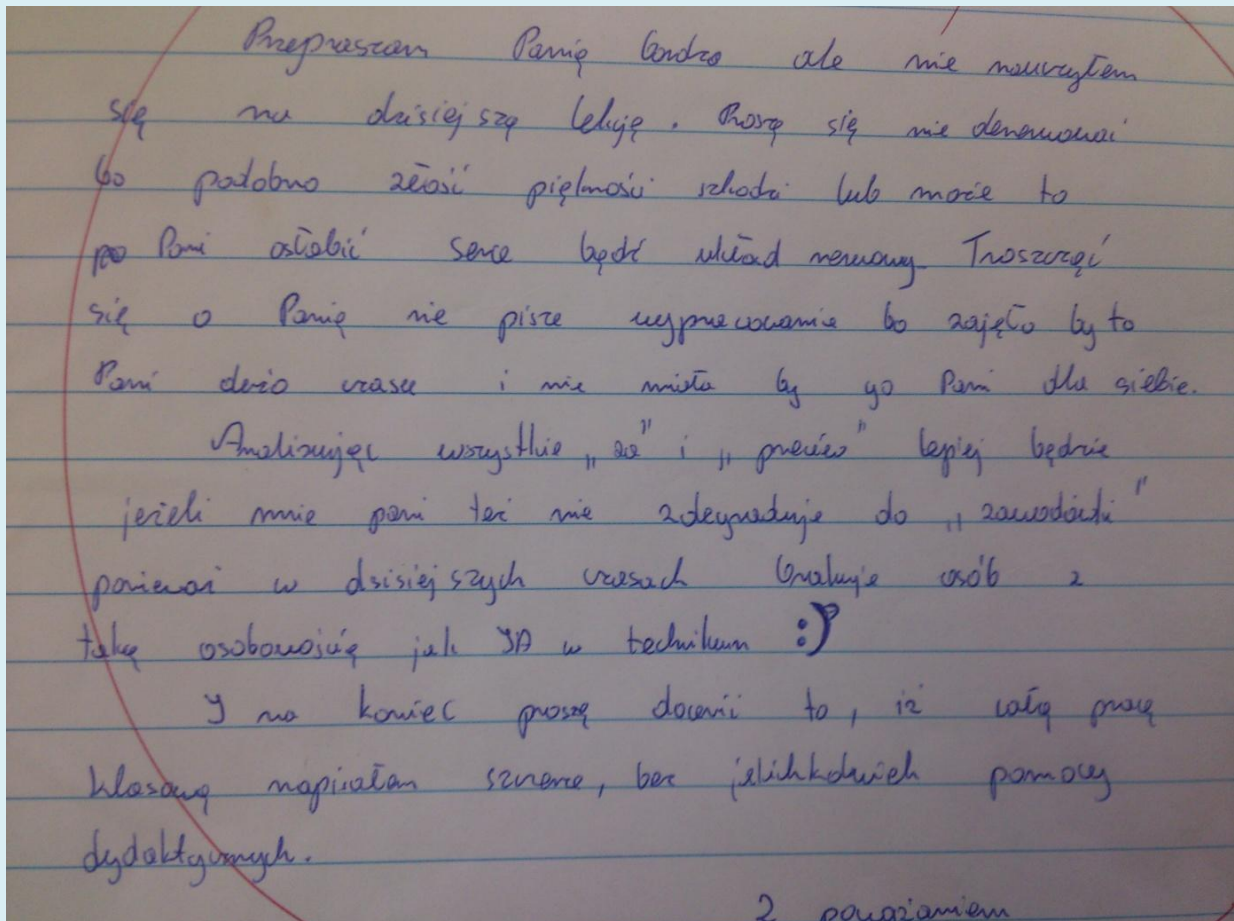 Przepraszam Panią bardzo ale nie nauczyłem
się na dzisiejszą lekcję. Proszę się nie denerwować
bo podobno złość piękności szkodzi lub może to
Pani osłabić serce bądź układ nerwowy. Troszcząć
się o Panią nie pisze wypracowania bo zajęło by to
Pani dużo czasu i nie miała by go Pani dla siebie.
Analizując wszystkie „za" i „przeciw" lepiej będzie
jeżeli mnie pani też nie zdegraduje do „zawodówki"
ponieważ w dzisiejszych czasach brakuje osób z
taką osobowością jak JA w technikum :)
I na koniec proszę docenić to, iż całą pracę
klasową napisałam szczerze, bez jakichkolwiek pomocy
dydaktycznych.
Z poważaniem